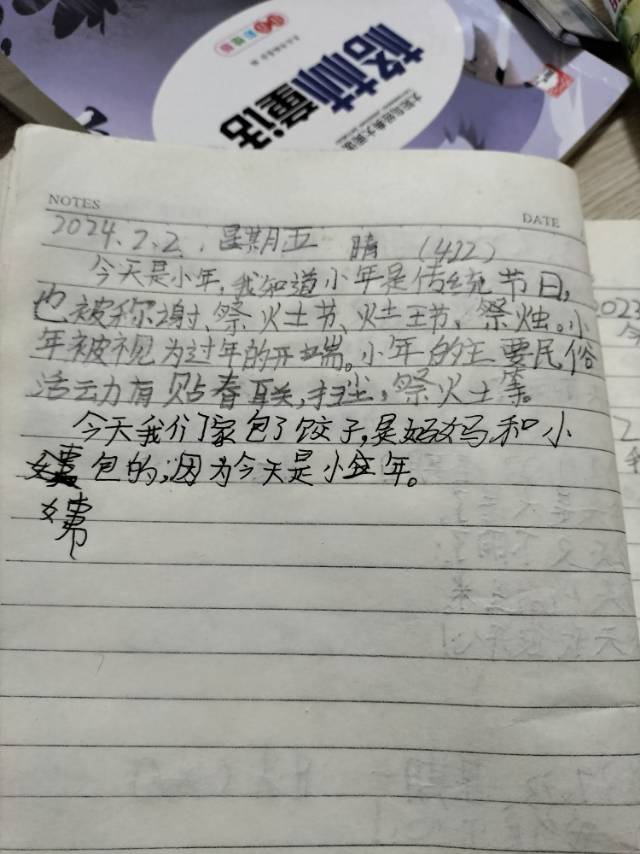 格林童话
NOTES
DATE
2024.2.2.星期五 晴 (422)
今天是小年,我知道小年是传统节日,
也被称谢、祭灶节、灶王节、祭烛。小
年被视为过年的开端。小年的主要民俗
活动有贴春联,扫尘,祭灶等。
今天我们家包了饺子,是妈妈和小
包的,因为今天是小年。
2023